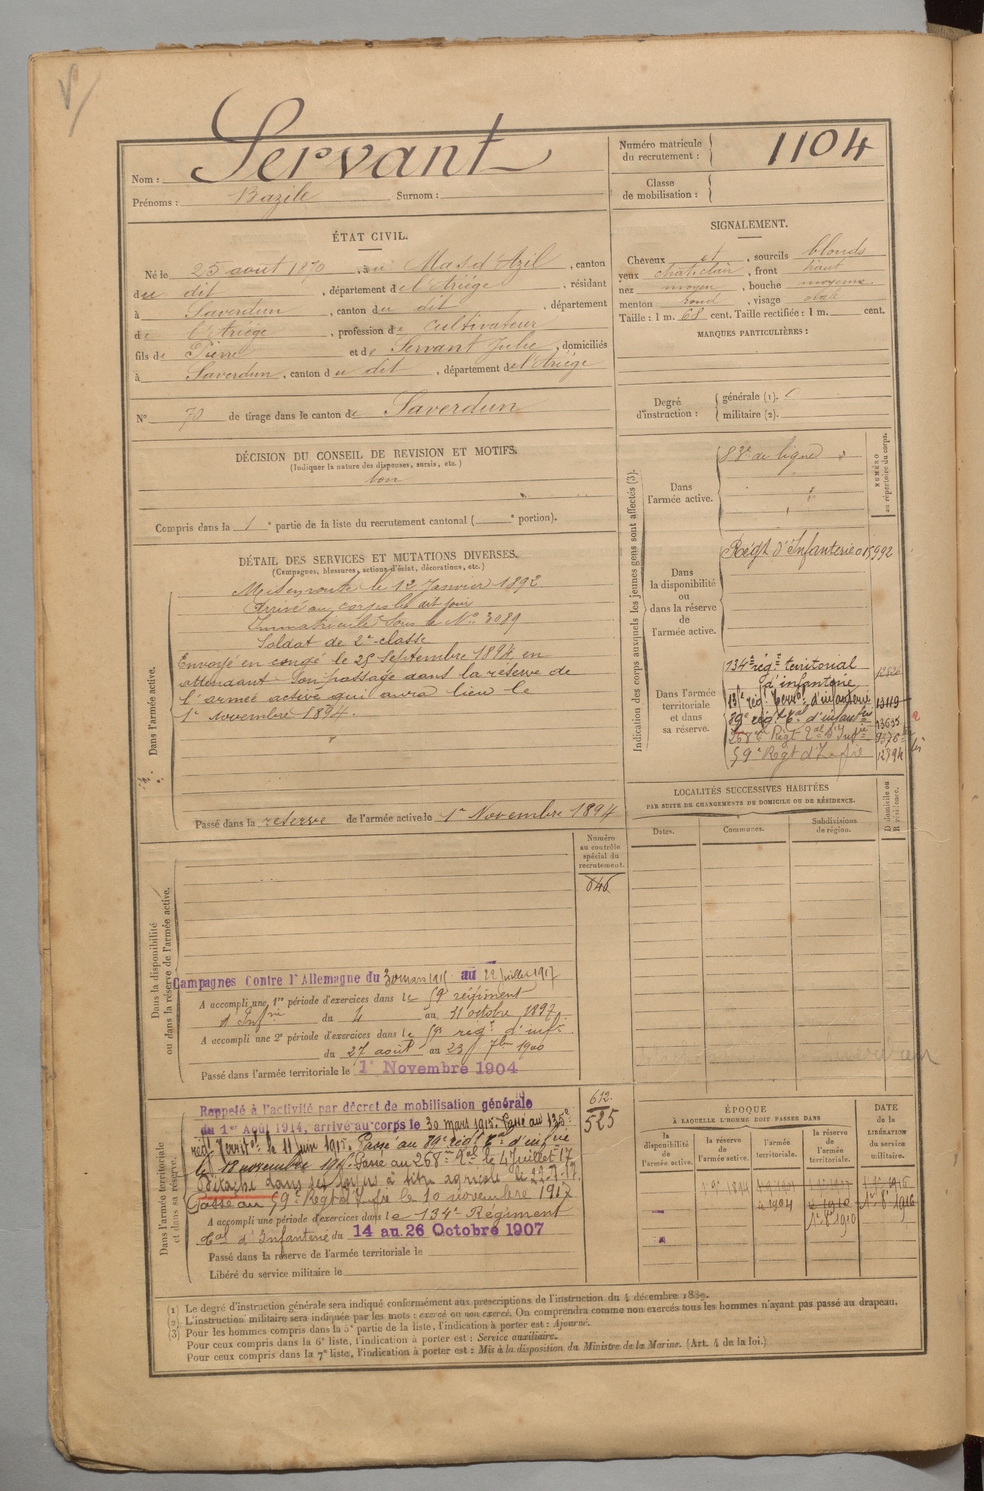 Nom : Servant
Prénoms : Bazile Surnom :
Numéro matricule
du recrutement : 1104
Classe
de mobilisation :
ÉTAT CIVIL.
Né le 25 août 1870, à u Mas d'Azil, canton
du dit, département de l'Ariège, résidant
à Saverdun, canton du dit, département
de l'Ariège, profession de cultivateur
fils de Pierre et de Servant Julie, domiciliés
à Saverdun, canton du dit, département de l'Ariège
N° 70 de tirage dans le canton de Saverdun
SIGNALEMENT.
Cheveux et, sourcils blonds
yeux chat. clair, front haut
nez moyen, bouche moyenne
menton rond, visage ovale
Taille : 1 m. 68 cent. Taille rectifiée : 1 m. cent.
MARQUES PARTICULIÈRES :
Degré
d'instruction :
générale (1). 0
militaire (2).
DÉCISION DU CONSEIL DE REVISION ET MOTIFS.
(Indiquer la nature des dispenses, sursis, etc.)
bon
Compris dans la 1e partie de la liste du recrutement cantonal ( e portion).
DÉTAIL DES SERVICES ET MUTATIONS DIVERSES.
(Campagnes, blessures, actions d'éclat, décorations, etc.)
Dans l'armée active.
Mis en route le 12 Janvier 1892
Arrivé au corps le dit jour
Immatriculé sous le No 3089
Soldat de 2e classe
Envoyé en congé le 25 Septembre 1894 en
attendant son passage dans la réserve de
l'armée active qui aura lieu le
1er novembre 1894.
Passé dans la réserve de l'armée active le 1er Novembre 1894
Indication des corps auxquels les jeunes gens sont affectés (3).
NUMÉRO
au répertoire du corps.
Dans
l'armée active.
83e de ligne
Dans
la disponibilité
ou
dans la réserve
de
l'armée active.
Régt d'Infanterie 015992
Dans l'armée
territoriale
et dans
sa réserve.
134e régt territorial
d'infanterie
135e régt territ. d'infanterie 13119
89e régt tal d'infanterie 13635
268e Régt tal d'Infie
59e Regt d'Infie
LOCALITÉS SUCCESSIVES HABITÉES
PAR SUITE DE CHANGEMENTS DE DOMICILE OU DE RÉSIDENCE.
Dates.
Communes.
Subdivisions
de région.
Domicile ou
Résidence.
Dans la disponibilité
ou dans la réserve de l'armée active.
Numéro
au contrôle
spécial du
recrutement.
646
Campagnes Contre l'Allemagne du 30 mars 1915 au 22 Juillet 1917
A accompli une 1re période d'exercices dans le 59e régiment
d'Infrie du 4 au 11 octobre 1897.
A accompli une 2e période d'exercices dans le 59e régt d'infie
du 27 août au 23 7bre 1900
Passé dans l'armée territoriale le 1er Novembre 1904
Dans l'armée territoriale
et dans sa réserve.
612
525
Rappelé à l'activité par décret de mobilisation générale
du 1er Août 1914, arrivé au corps le 30 mars 1915. Passé au 135e
régt territal le 11 juin 1915. Passé au 89e régt tal d'infrie
le 18 novembre Passé au 268e tal le 4 Juillet 17
Détaché dans ses foyers à titre agricole le 22.7.17
Passé au 59e Régt d'Infie le 10 novembre 1917
A accompli une période d'exercices dans le 134e Régiment
tal d'Infanterie du 14 au 26 Octobre 1907
Passé dans la réserve de l'armée territoriale le
Libéré du service militaire le
ÉPOQUE
À LAQUELLE L'HOMME DOIT PASSER DANS
DATE
de la
LIBÉRATION
du service
militaire.
la
disponibilité
de
l'armée active.
la réserve
de
l'armée active.
l'armée
territoriale.
la réserve
de
l'armée
territoriale.
(1) Le degré d'instruction générale sera indiqué conformément aux prescriptions de l'instruction du 4 décembre 1889.
(2) L'instruction militaire sera indiquée par les mots : exercé ou non exercé. On comprendra comme non exercés tous les hommes n'ayant pas passé au drapeau.
(3) Pour les hommes compris dans la 5e partie de la liste, l'indication à porter est : Ajourné.
Pour ceux compris dans la 6e liste, l'indication à porter est : Service auxiliaire.
Pour ceux compris dans la 7e liste, l'indication à porter est : Mis à la disposition du Ministre de la Marine. (Art. 4 de la loi.)